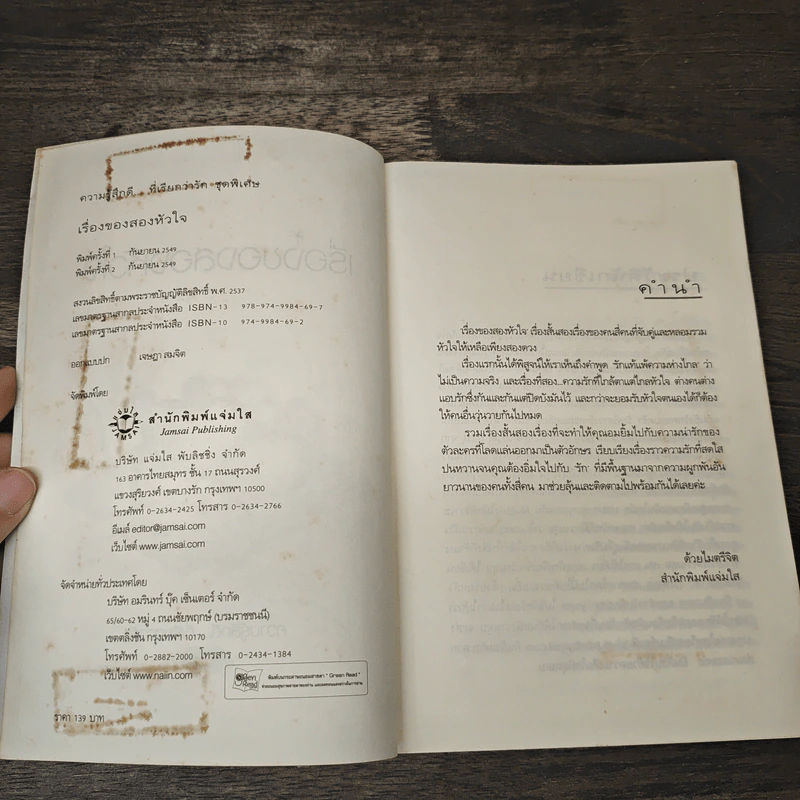 ความรู้สึกดี... ที่เรียกว่ารัก ชุดพิเศษ
เรื่องของสองหัวใจ
พิมพ์ครั้งที่ 1 กันยายน 2549
พิมพ์ครั้งที่ 2 กันยายน 2549
สงวนลิขสิทธิ์ตามพระราชบัญญัติลิขสิทธิ์ พ.ศ. 2537
เลขมาตรฐานสากลประจำหนังสือ ISBN-13 978-974-9984-69-7
เลขมาตรฐานสากลประจำหนังสือ ISBN-10 974-9984-69-2
ออกแบบปก เจษฎา สมจิต
จัดพิมพ์โดย
แจ่มใส
JAMSAI
สำนักพิมพ์แจ่มใส
Jamsai Publishing
บริษัท แจ่มใส พับลิชชิ่ง จำกัด
163 อาคารไทยสมุทร ชั้น 17 ถนนสุรวงศ์
แขวงสุริยวงศ์ เขตบางรัก กรุงเทพฯ 10500
โทรศัพท์ 0-2634-2425 โทรสาร 0-2634-2766
อีเมล์ editor@jamsai.com
เว็บไซต์ www.jamsai.com
จัดจำหน่ายทั่วประเทศโดย
บริษัท อมรินทร์ บุ๊ค เซ็นเตอร์ จำกัด
65/60-62 หมู่ 4 ถนนชัยพฤกษ์ (บรมราชชนนี)
เขตตลิ่งชัน กรุงเทพฯ 10170
โทรศัพท์ 0-2882-2000 โทรสาร 0-2434-1384
เว็บไซต์ www.naiin.com
Green Read
พิมพ์บนกระดาษถนอมสายตา "Green Read"
ราคา 139 บาท
คำนำ
เรื่องของสองหัวใจ เรื่องสั้นสองเรื่องของคนสี่คนที่จับคู่และหลอมรวม
หัวใจให้เหลือเพียงสองดวง
เรื่องแรกนั้นได้พิสูจน์ให้เราเห็นถึงคำพูด 'รักแท้แพ้ความห่างไกล' ว่า
ไม่เป็นความจริง และเรื่องที่สอง...ความรักที่ใกล้ตาแต่ไกลหัวใจ ต่างคนต่าง
แอบรักซึ่งกันและกันแต่ปิดบังมันไว้ และกว่าจะยอมรับหัวใจตนเองได้ก็ต้อง
ให้คนอื่นวุ่นวายกันไปหมด
รวมเรื่องสั้นสองเรื่องที่จะทำให้คุณอมยิ้มไปกับความน่ารักของ
ตัวละครที่โลดแล่นออกมาเป็นตัวอักษร เรียบเรียงเรื่องราวความรักที่สดใส
ปนหวานจนคุณต้องอิ่มใจไปกับ 'รัก' ที่มีพื้นฐานมาจากความผูกพันอัน
ยาวนานของคนทั้งสี่คน มาช่วยลุ้นและติดตามไปพร้อมกันได้เลยค่ะ
ด้วยไมตรีจิต
สำนักพิมพ์แจ่มใส